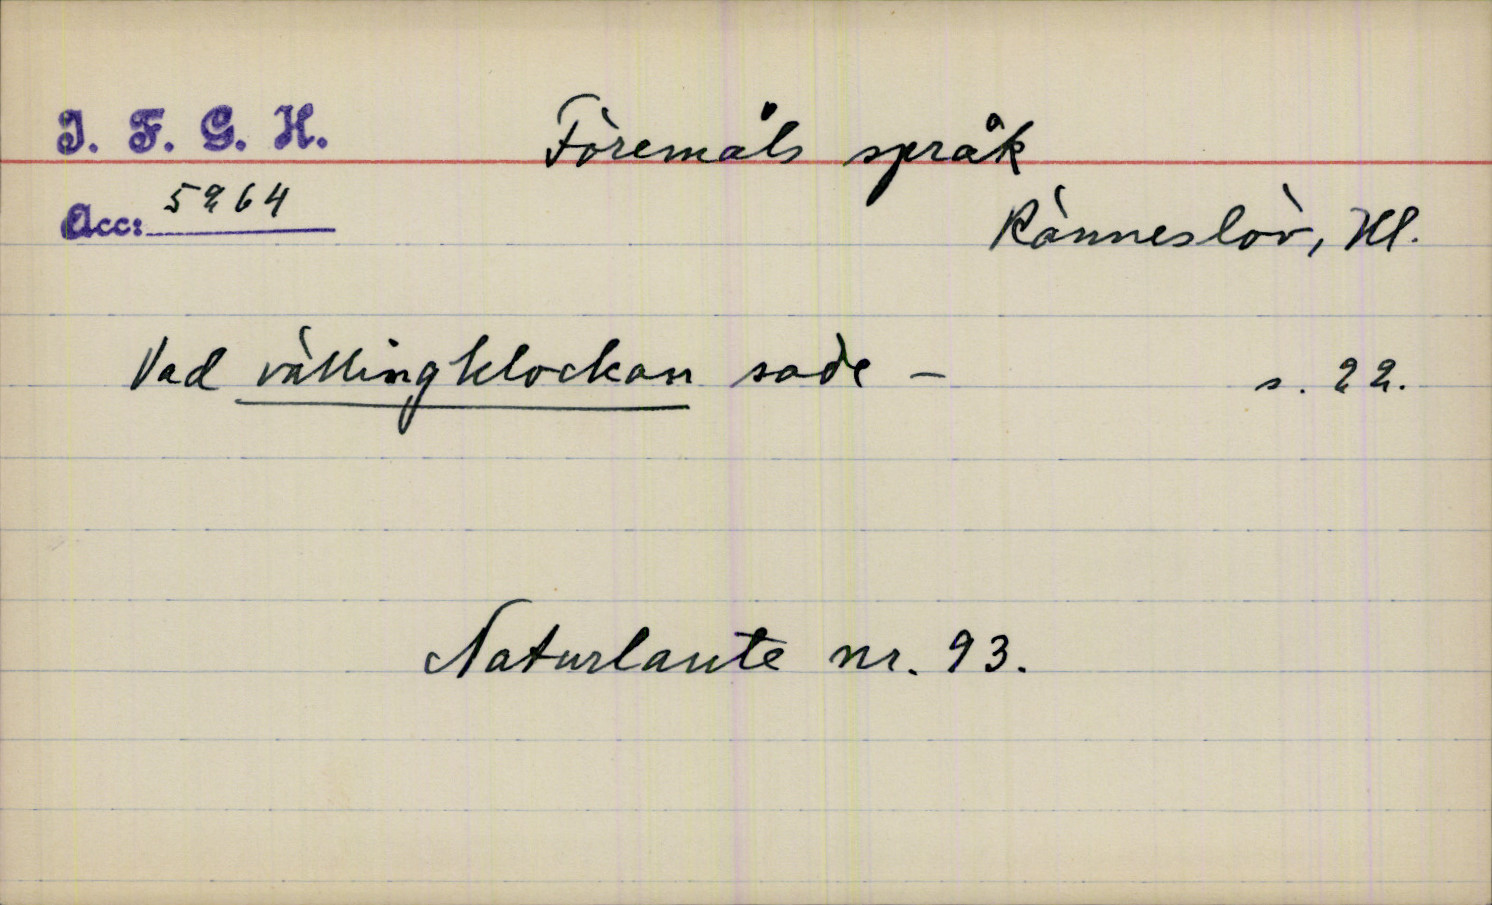 I. F. G. H.
Föremåls språk
Acc: 5264
Ränneslöv, Hl.
Vad vällingklockan sade – s. 22.
Naturlaute nr. 93.